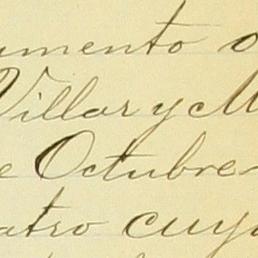 umento o
Villar y M
e Octubre
atro cuy